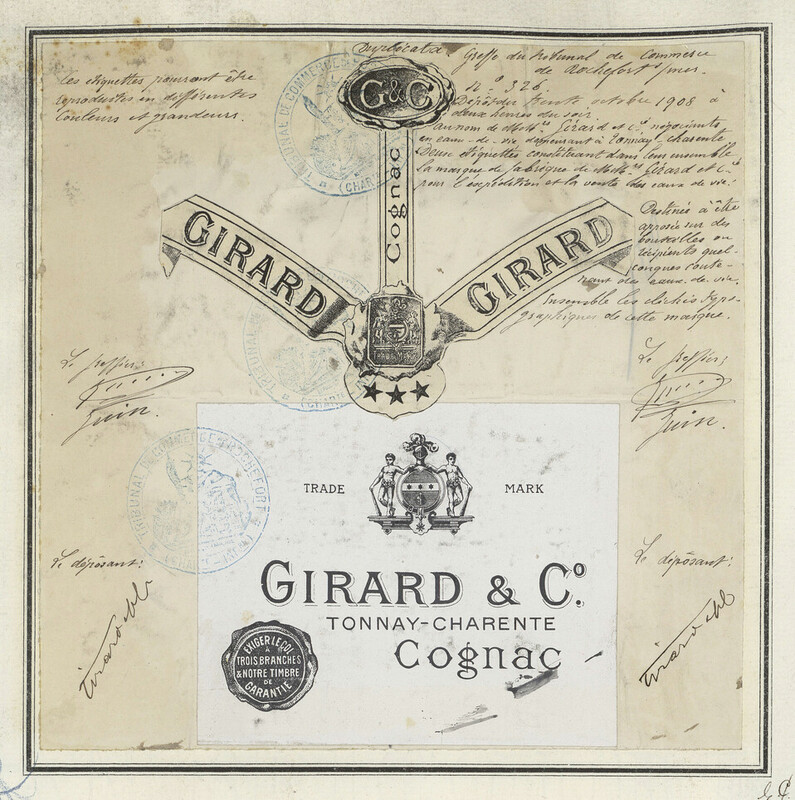 Les étiquettes pourront être
reproduites en différentes
couleurs et grandeurs.
Duplicata Greffe du tribunal de Commerce
de Rochefort s/mer.
N° 326
Dépôt du trente octobre 1908 à
deux heures du soir.
au nom de MM. Girard et Cie négociants
en eaux-de-vie demeurant à Tonnay-Charente
Deux étiquettes constituant dans leur ensemble
la marque de fabrique de MM. Girard et Cie
pour l'expédition et la vente des eaux de vie:
Destinée à être
apposée sur des
bouteilles ou
récipients quel-
conques conte-
nant des eaux-de-vie.
Ensemble les clichés typo-
graphiques de cette marque.
G&C
Cognac
GIRARD
GIRARD
TRIBUNAL DE COMMERCE DE
(CHAR
TRIBUNAL
(CHAR
Le greffier,
Guin.
Le greffier,
Guin.
TRIBUNAL DE COMMERCE DE ROCHEFORT
(CHARENTE-INFRE)
TRADE MARK
GIRARD & Co.
TONNAY-CHARENTE
Cognac
EXIGER LE COL
A
TROIS BRANCHES
& NOTRE TIMBRE
DE
GARANTIE
Le déposant:
Girard &
Le déposant:
Girard &